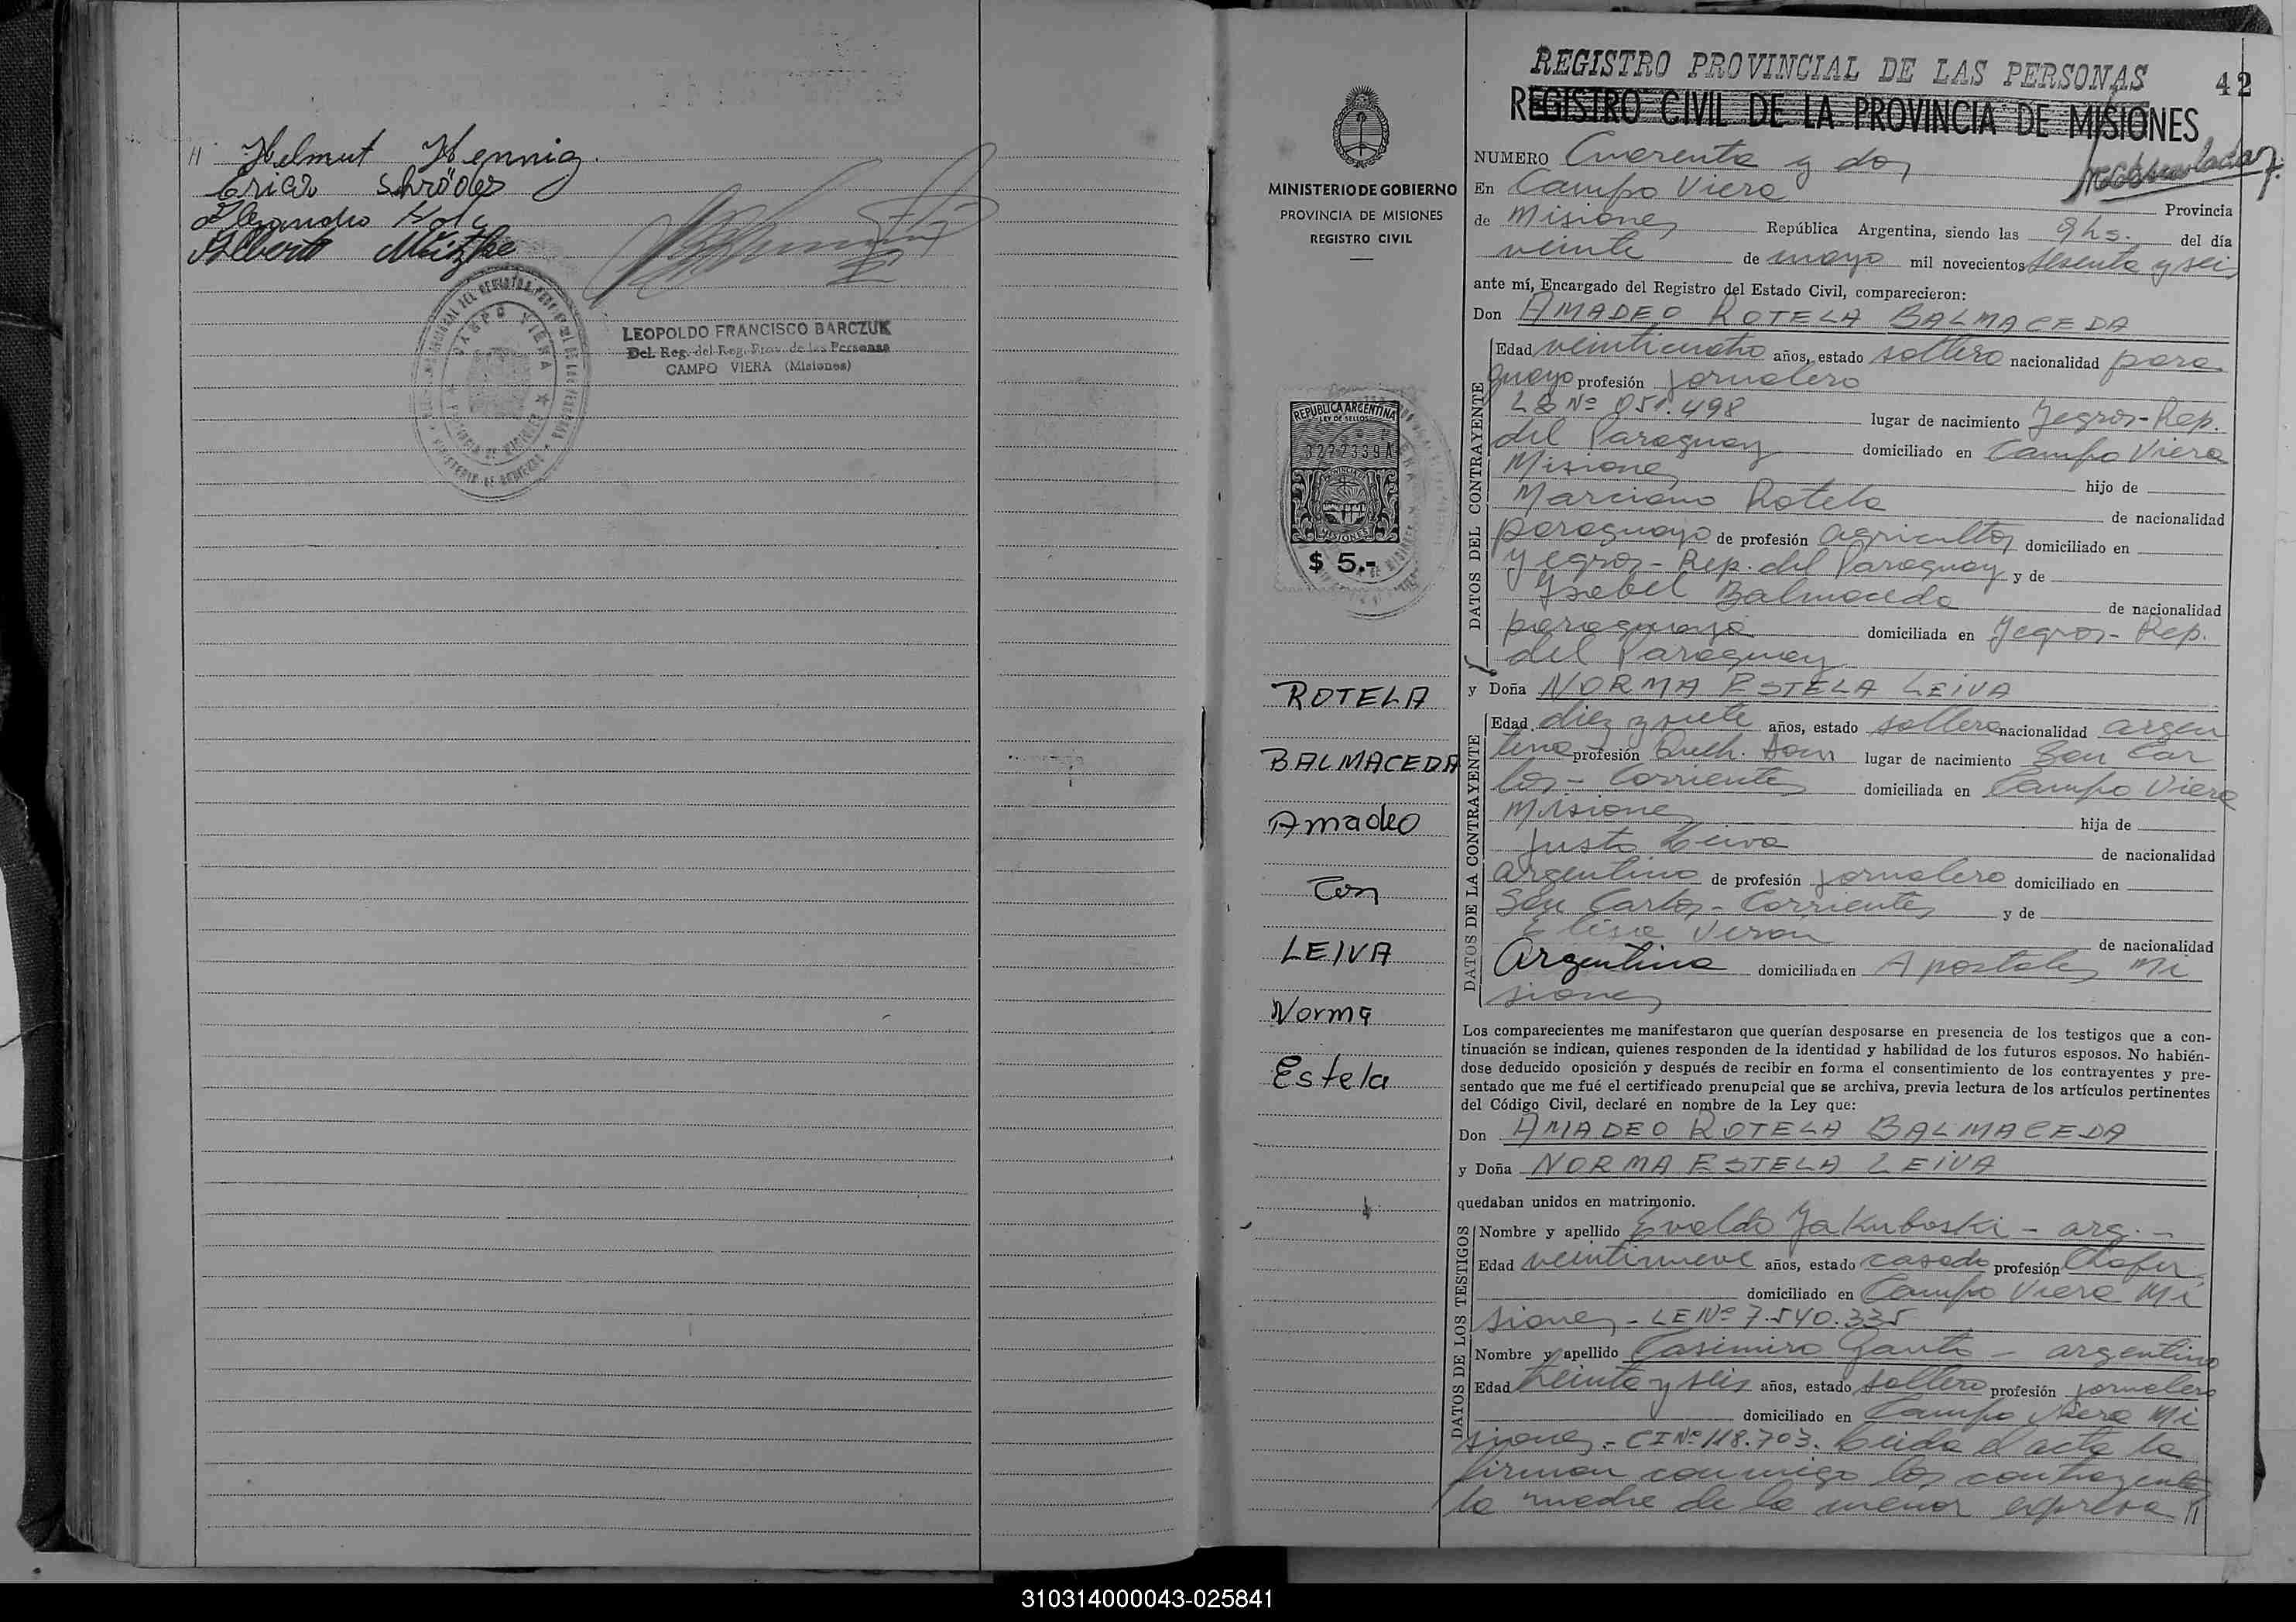 Helmut Hennig.
Erico Schröder
Alberto
LEOPOLDO FRANCISCO BARCZUK
Del. Reg. del Reg. Prov. de las Personas
CAMPO VIERA (Misiones)
MINISTERIO DE GOBIERNO
PROVINCIA DE MISIONES
REGISTRO CIVIL
REPUBLICA ARGENTINA
LEY DE SELLOS
3272339A
MISIONES
$ 5.-
ROTELA
BALMACEDA
Amadeo
Con
LEIVA
Norma
Estela
REGISTRO PROVINCIAL DE LAS PERSONAS
42
REGISTRO CIVIL DE LA PROVINCIA DE MISIONES
NUMERO Cuarenta y dos
En Campo Viera Provincia
de Misiones República Argentina, siendo las 9 hs. del día
veinte de mayo mil novecientos sesenta y seis
ante mí, Encargado del Registro del Estado Civil, comparecieron:
Don AMADEO ROTELA BALMACEDA
DATOS DEL CONTRAYENTE
Edad veinticuatro años, estado soltero nacionalidad para
guayo profesión jornalero
Nº 051.498 lugar de nacimiento Yegros-Rep.
del Paraguay domiciliado en Campo Viera
Misiones hijo de
Marciano Rotela de nacionalidad
paraguayo de profesión agricultor domiciliado en
Yegros- Rep. del Paraguay y de
Ysabel Balmaceda de nacionalidad
paraguaya domiciliada en Yegros- Rep.
del Paraguay
y Doña NORMA ESTELA LEIVA
DATOS DE LA CONTRAYENTE
Edad diez y siete años, estado soltera nacionalidad argen
tina profesión Queh. Dom lugar de nacimiento San Car
los- Corrientes domiciliada en Campo Viera
Misiones hija de
Justo Leiva de nacionalidad
argentino de profesión jornalero domiciliado en
San Carlos- Corrientes y de
Elisa Veron de nacionalidad
Argentina domiciliada en Apostoles Mi
siones
Los comparecientes me manifestaron que querían desposarse en presencia de los testigos que a con-
tinuación se indican, quienes responden de la identidad y habilidad de los futuros esposos. No habién-
dose deducido oposición y después de recibir en forma el consentimiento de los contrayentes y pre-
sentado que me fué el certificado prenupcial que se archiva, previa lectura de los artículos pertinentes
del Código Civil, declaré en nombre de la Ley que:
Don AMADEO ROTELA BALMACEDA
y Doña NORMA ESTELA LEIVA
quedaban unidos en matrimonio.
DATOS DE LOS TESTIGOS
Nombre y apellido Evaldo Jakuboski - arg.-
Edad veintinueve años, estado casado profesión Chofer
domiciliado en Campo Viera Mi
siones - LE Nº 7.540.335
Nombre y apellido Casimiro Gauto - argentino
Edad treinta y seis años, estado soltero profesión jornalero
domiciliado en Campo Viera Mi
siones.- CI Nº 118.703. Leida el acta la
firman conmigo los contrayentes
la madre de la menor expresa //
310314000043-025841